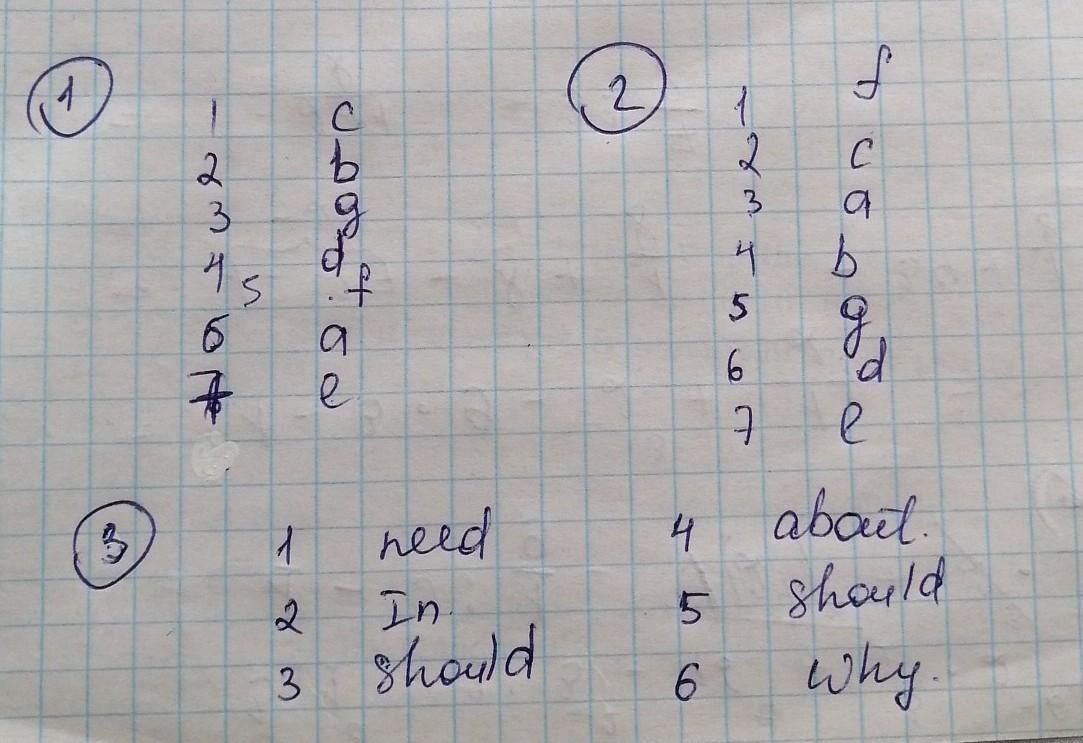 1
1 c
2 b
3 g
4 d
5 f
6 a
7 e
2
1 f
2 c
3 a
4 b
5 g
6 d
7 e
3
1 need
2 In.
3 should
4 about.
5 should
6 Why.